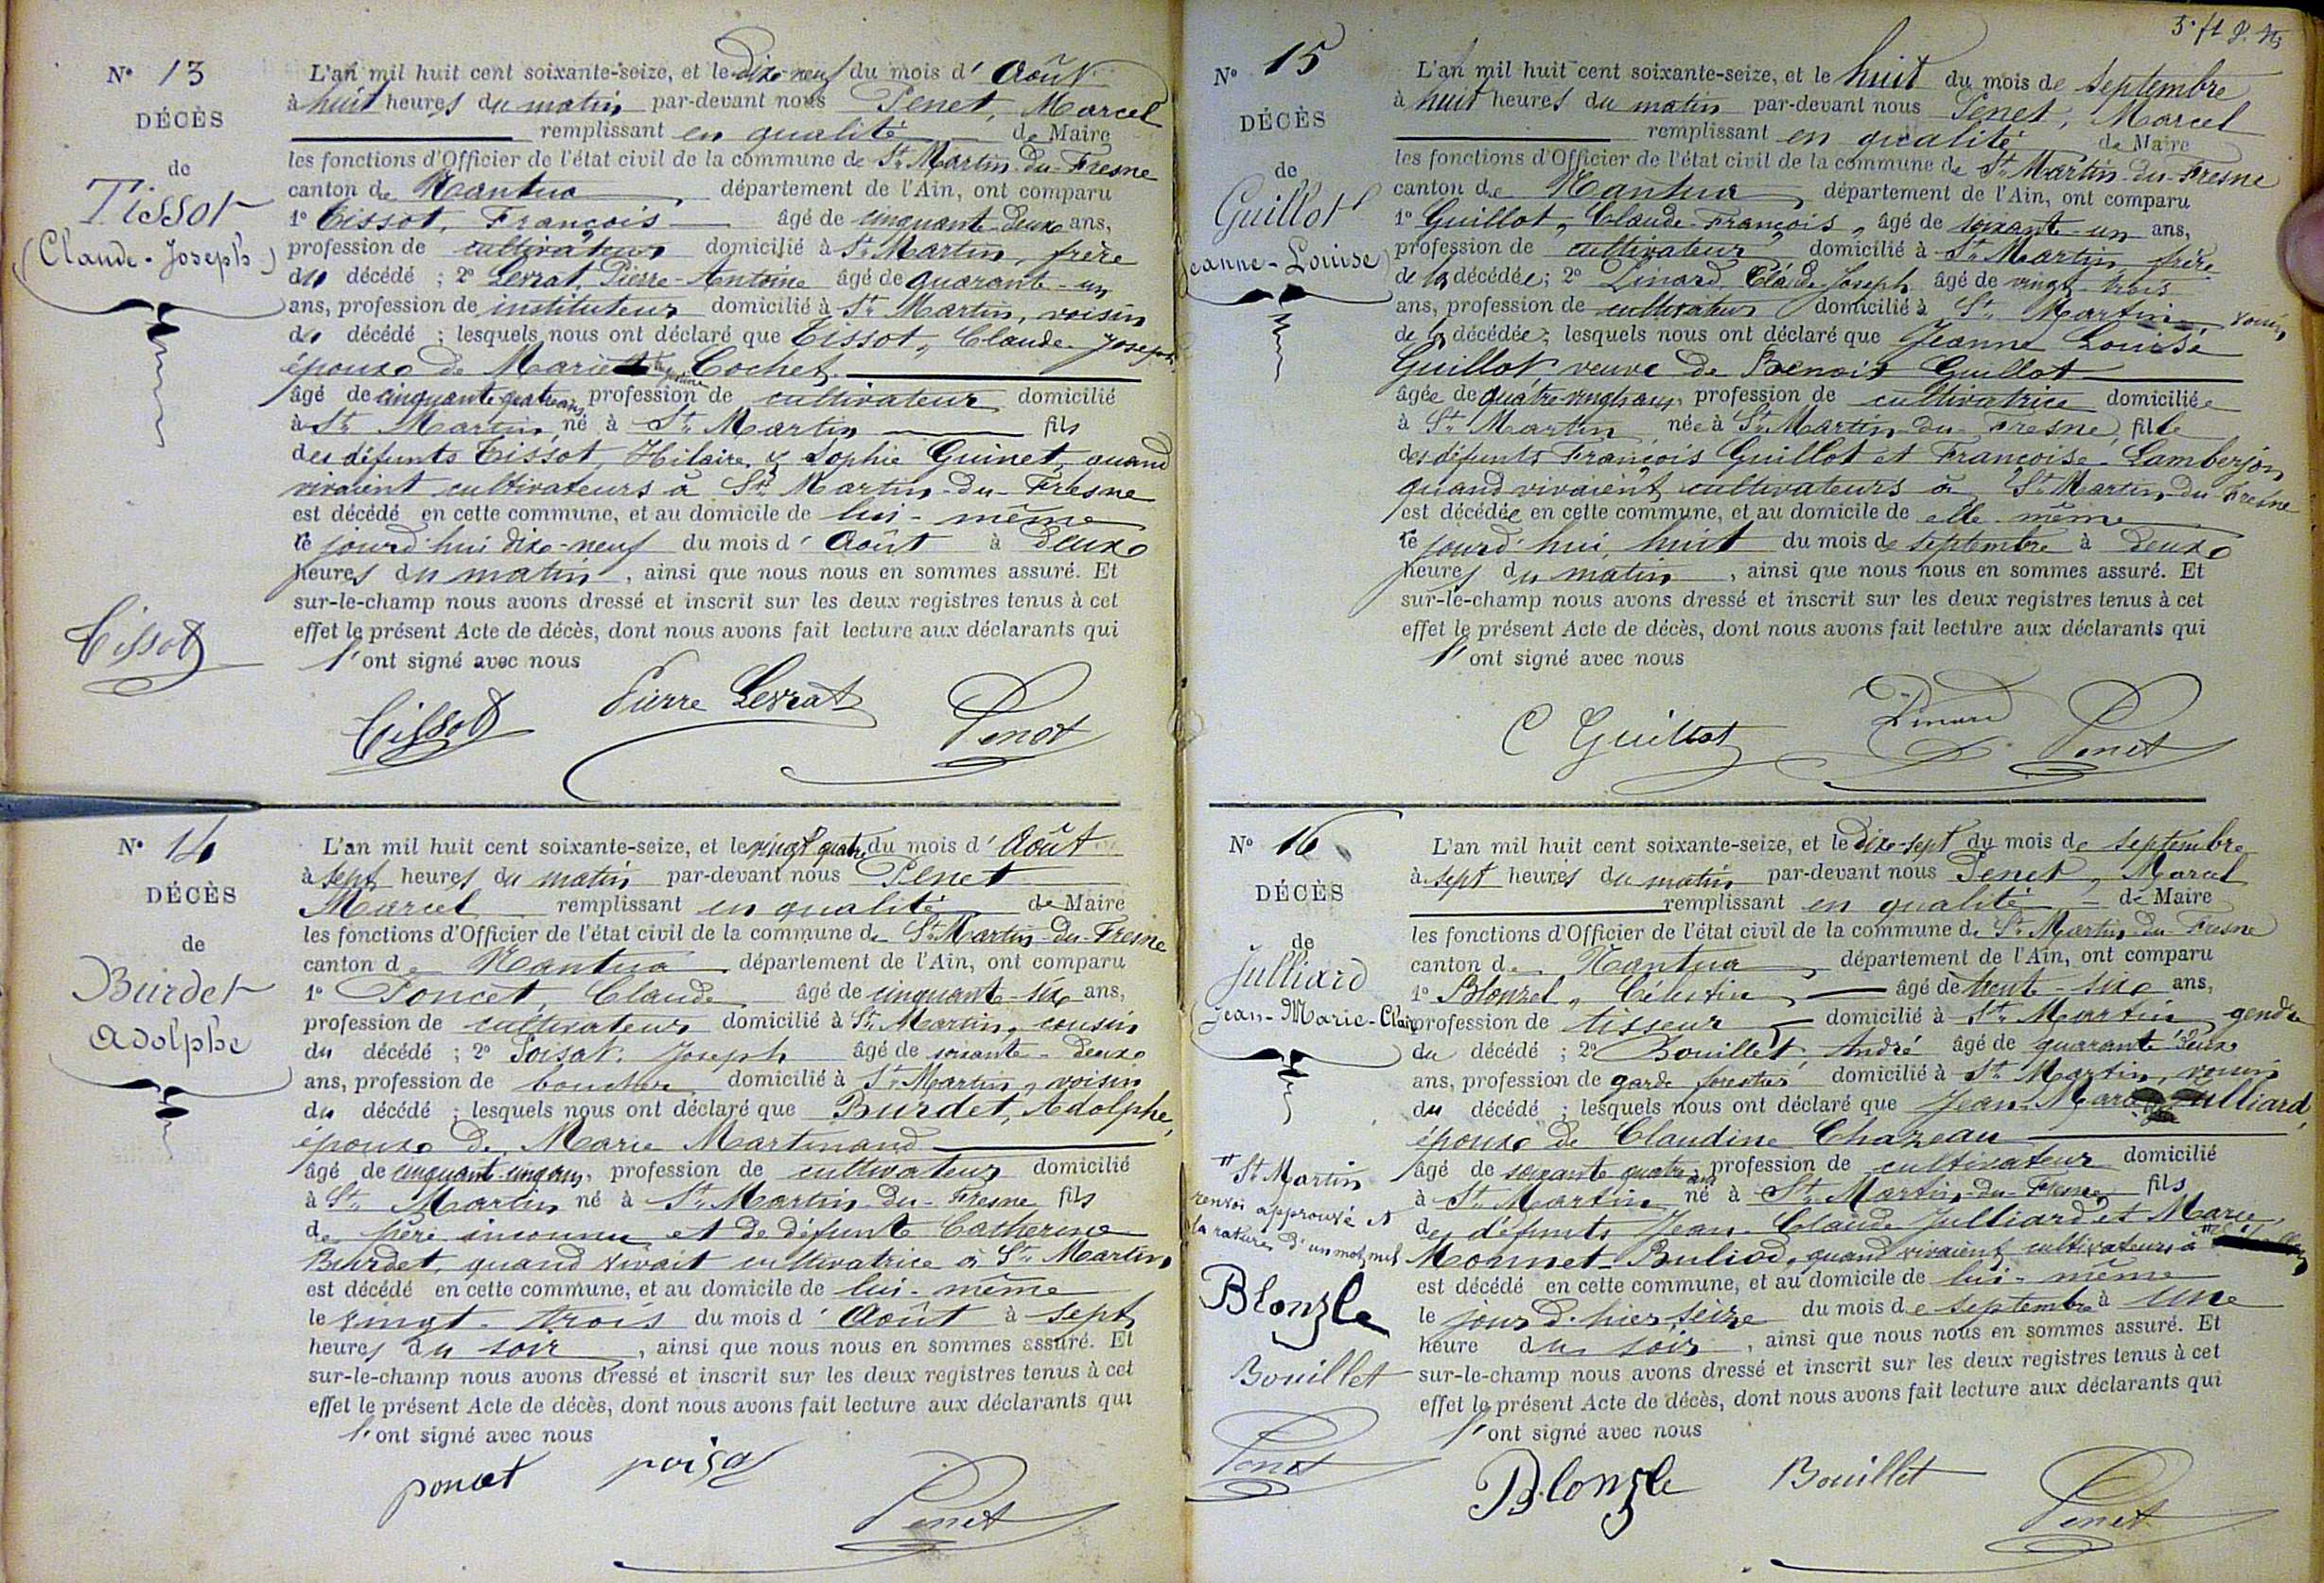 N° 13
DÉCÈS
de
Tissot
(Claude-Joseph)
L'an mil huit cent soixante-seize, et le dix-neuf du mois d'Août
à huit heures du matin par-devant nous Penet, Marcel
remplissant en qualité de Maire
les fonctions d'Officier de l'état civil de la commune de St Martin-du-Fresne
canton de Nantua, département de l'Ain, ont comparu
1° Tissot, François âgé de cinquante-deux ans,
profession de cultivateur domicilié à St Martin, frère
du décédé ; 2° Levrat, Pierre-Antoine âgé de quarante-un
ans, profession de instituteur domicilié à St Martin, voisin
du décédé ; lesquels nous ont déclaré que Tissot, Claude-Joseph,
époux de Marie Cochet
âgé de cinquante quatre ans, profession de cultivateur domicilié
à St Martin, né à St Martin fils
des défunts Tissot, Hilaire, & Sophie Guinet, quand
vivaient cultivateurs à St Martin-du-Fresne
est décédé en cette commune, et au domicile de lui-même
le jourd'hui dix-neuf du mois d'Août à deux
heures du matin, ainsi que nous nous en sommes assuré. Et
sur-le-champ nous avons dressé et inscrit sur les deux registres tenus à cet
effet le présent Acte de décès, dont nous avons fait lecture aux déclarants qui
l'ont signé avec nous
Tissot
Tissot Pierre Levrat Penet
N° 14
DÉCÈS
de
Burdet
Adolphe
L'an mil huit cent soixante-seize, et le vingt quatre du mois d'Août
à sept heures du matin par-devant nous Penet
Marcel remplissant en qualité de Maire
les fonctions d'Officier de l'état civil de la commune de St Martin-du-Fresne
canton de Nantua, département de l'Ain, ont comparu
1° Poncet, Claude âgé de cinquante-six ans,
profession de cultivateur domicilié à St Martin, cousin
du décédé ; 2° Poisat, Joseph âgé de soixante-deux
ans, profession de boucher domicilié à St Martin, voisin
du décédé ; lesquels nous ont déclaré que Burdet, Adolphe,
époux de Marie Martinand
âgé de cinquante-cinq ans, profession de cultivateur domicilié
à St Martin né à St Martin-du-Fresne fils
de père inconnu et de défunte Catherine
Burdet, quand vivait cultivatrice à St Martin
est décédé en cette commune, et au domicile de lui-même
le vingt-trois du mois d'Août à sept
heures du soir, ainsi que nous nous en sommes assuré. Et
sur-le-champ nous avons dressé et inscrit sur les deux registres tenus à cet
effet le présent Acte de décès, dont nous avons fait lecture aux déclarants qui
l'ont signé avec nous
poncet poisat Penet
N° 15
DÉCÈS
de
Guillot
Jeanne-Louise
L'an mil huit cent soixante-seize, et le huit du mois de septembre
à huit heures du matin par-devant nous Penet, Marcel
remplissant en qualité de Maire
les fonctions d'Officier de l'état civil de la commune de St Martin-du-Fresne
canton de Nantua, département de l'Ain, ont comparu
1° Guillot, Claude-François, âgé de soixante-un ans,
profession de cultivateur, domicilié à St Martin, frère
de la décédée ; 2° Linard, Claude Joseph âgé de vingt-trois
ans, profession de cultivateur domicilié à St Martin, voisin
de la décédée ; lesquels nous ont déclaré que Jeanne Louise
Guillot veuve de Benoit Guillot
âgée de quatre-vingts ans, profession de cultivatrice domiciliée
à St Martin née à St Martin-du-Fresne, fille
des défunts François Guillot et Françoise Lamberjon
quand vivaient cultivateurs à St Martin-du-Fresne
est décédée en cette commune, et au domicile de elle-même
le jourd'hui, huit du mois de septembre à deux
heures du matin, ainsi que nous nous en sommes assuré. Et
sur-le-champ nous avons dressé et inscrit sur les deux registres tenus à cet
effet le présent Acte de décès, dont nous avons fait lecture aux déclarants qui
l'ont signé avec nous
C Guillot Linard Penet
N° 16
DÉCÈS
de
Julliard
Jean-Marie-Clair
L'an mil huit cent soixante-seize, et le dix-sept du mois de septembre
à sept heures du matin par-devant nous Penet, Marcel
remplissant en qualité de Maire
les fonctions d'Officier de l'état civil de la commune de St Martin-du-Fresne
canton de Nantua, département de l'Ain, ont comparu
1° Blonzel, Célestin, âgé de trente-six ans,
profession de tisseur domicilié à St Martin, gendre
du décédé ; 2° Bouillet, André âgé de quarante deux
ans, profession de garde forestier domicilié à St Martin, voisin
du décédé ; lesquels nous ont déclaré que Jean-Marie Julliard,
époux de Claudine Chazeau
âgé de soixante quatre ans profession de cultivateur domicilié
à St Martin né à St Martin-du-Fresne fils
des défunts Jean-Claude Julliard et Marie
Monnet-Buliod, quand vivaient cultivateurs à "
est décédé en cette commune, et au domicile de lui-même
le jour d'hier seize du mois de septembre à une
heure du soir, ainsi que nous nous en sommes assuré. Et
sur-le-champ nous avons dressé et inscrit sur les deux registres tenus à cet
effet le présent Acte de décès, dont nous avons fait lecture aux déclarants qui
l'ont signé avec nous
" St Martin
renvoi approuvé et
la rature d'un mot nul
Blonzle
Bouillet
Penet
Blonzle Bouillet Penet